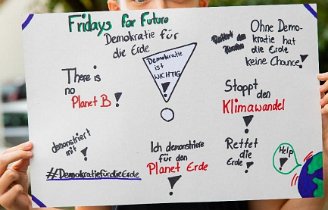 Fridays for Future
Demokratie für
die Erde
Ohne Demo-
kratie hat
die Erde
keine Chance!
Demokratie
ist
WICHTIG
!
There is
no
Planet B!
Stoppt
den
Klimawandel
!
demonstriert
mit!
Ich demonstriere
für den
Planet Erde
!
Rettet
die
Erde!
Help
!
#DemokratiefürdieErde